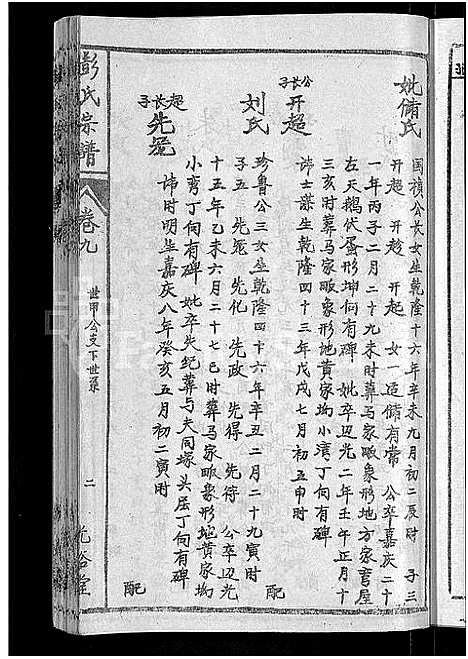 妣脩氏
國禎公長女生乾隆十六年辛未九月初二辰時 子三
開超 開趁 開起 女一适脩有常 公卒嘉庆二十
一年丙子二月二十九未时葬马家畈象形地方家書屋
左天鹅伏蛋形坤向有碑 妣卒道光二年壬午正月十
三亥时葬马家畈象形地黄家坳小湾丁向有碑
公長子
開超
諱士謀生乾隆四十三年戊戌七月初五申时 配
刘氏
珍魯公三女生乾隆四十六年辛丑二月二十九寅时
子五 先冕 先化 先政 先得 先待 公卒道光
十五年乙未六月二十七巳时葬马家畈象形地黄家坳
小弯丁向有碑 妣卒失纪葬与夫同塚头屈丁向有碑
超長子
先冕
諱时明生嘉庆八年癸亥五月初二寅时 配
彭氏宗譜
卷九
世甲公支下世系
二
光裕堂